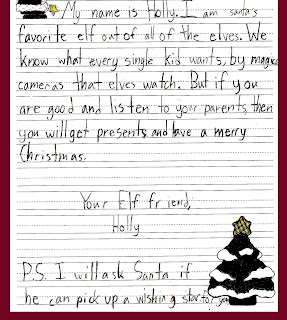 My name is Holly. I am santa's
favorite elf out of all of the elves. We
know what every single kid wants, by magic
cameras that elves watch. But if you
are good and listen to your parents, then
you will get presents and have a merry
Christmas.
Your Elf friend,
Holly
P.S. I will ask Santa if
he can pick up a wishing star for you